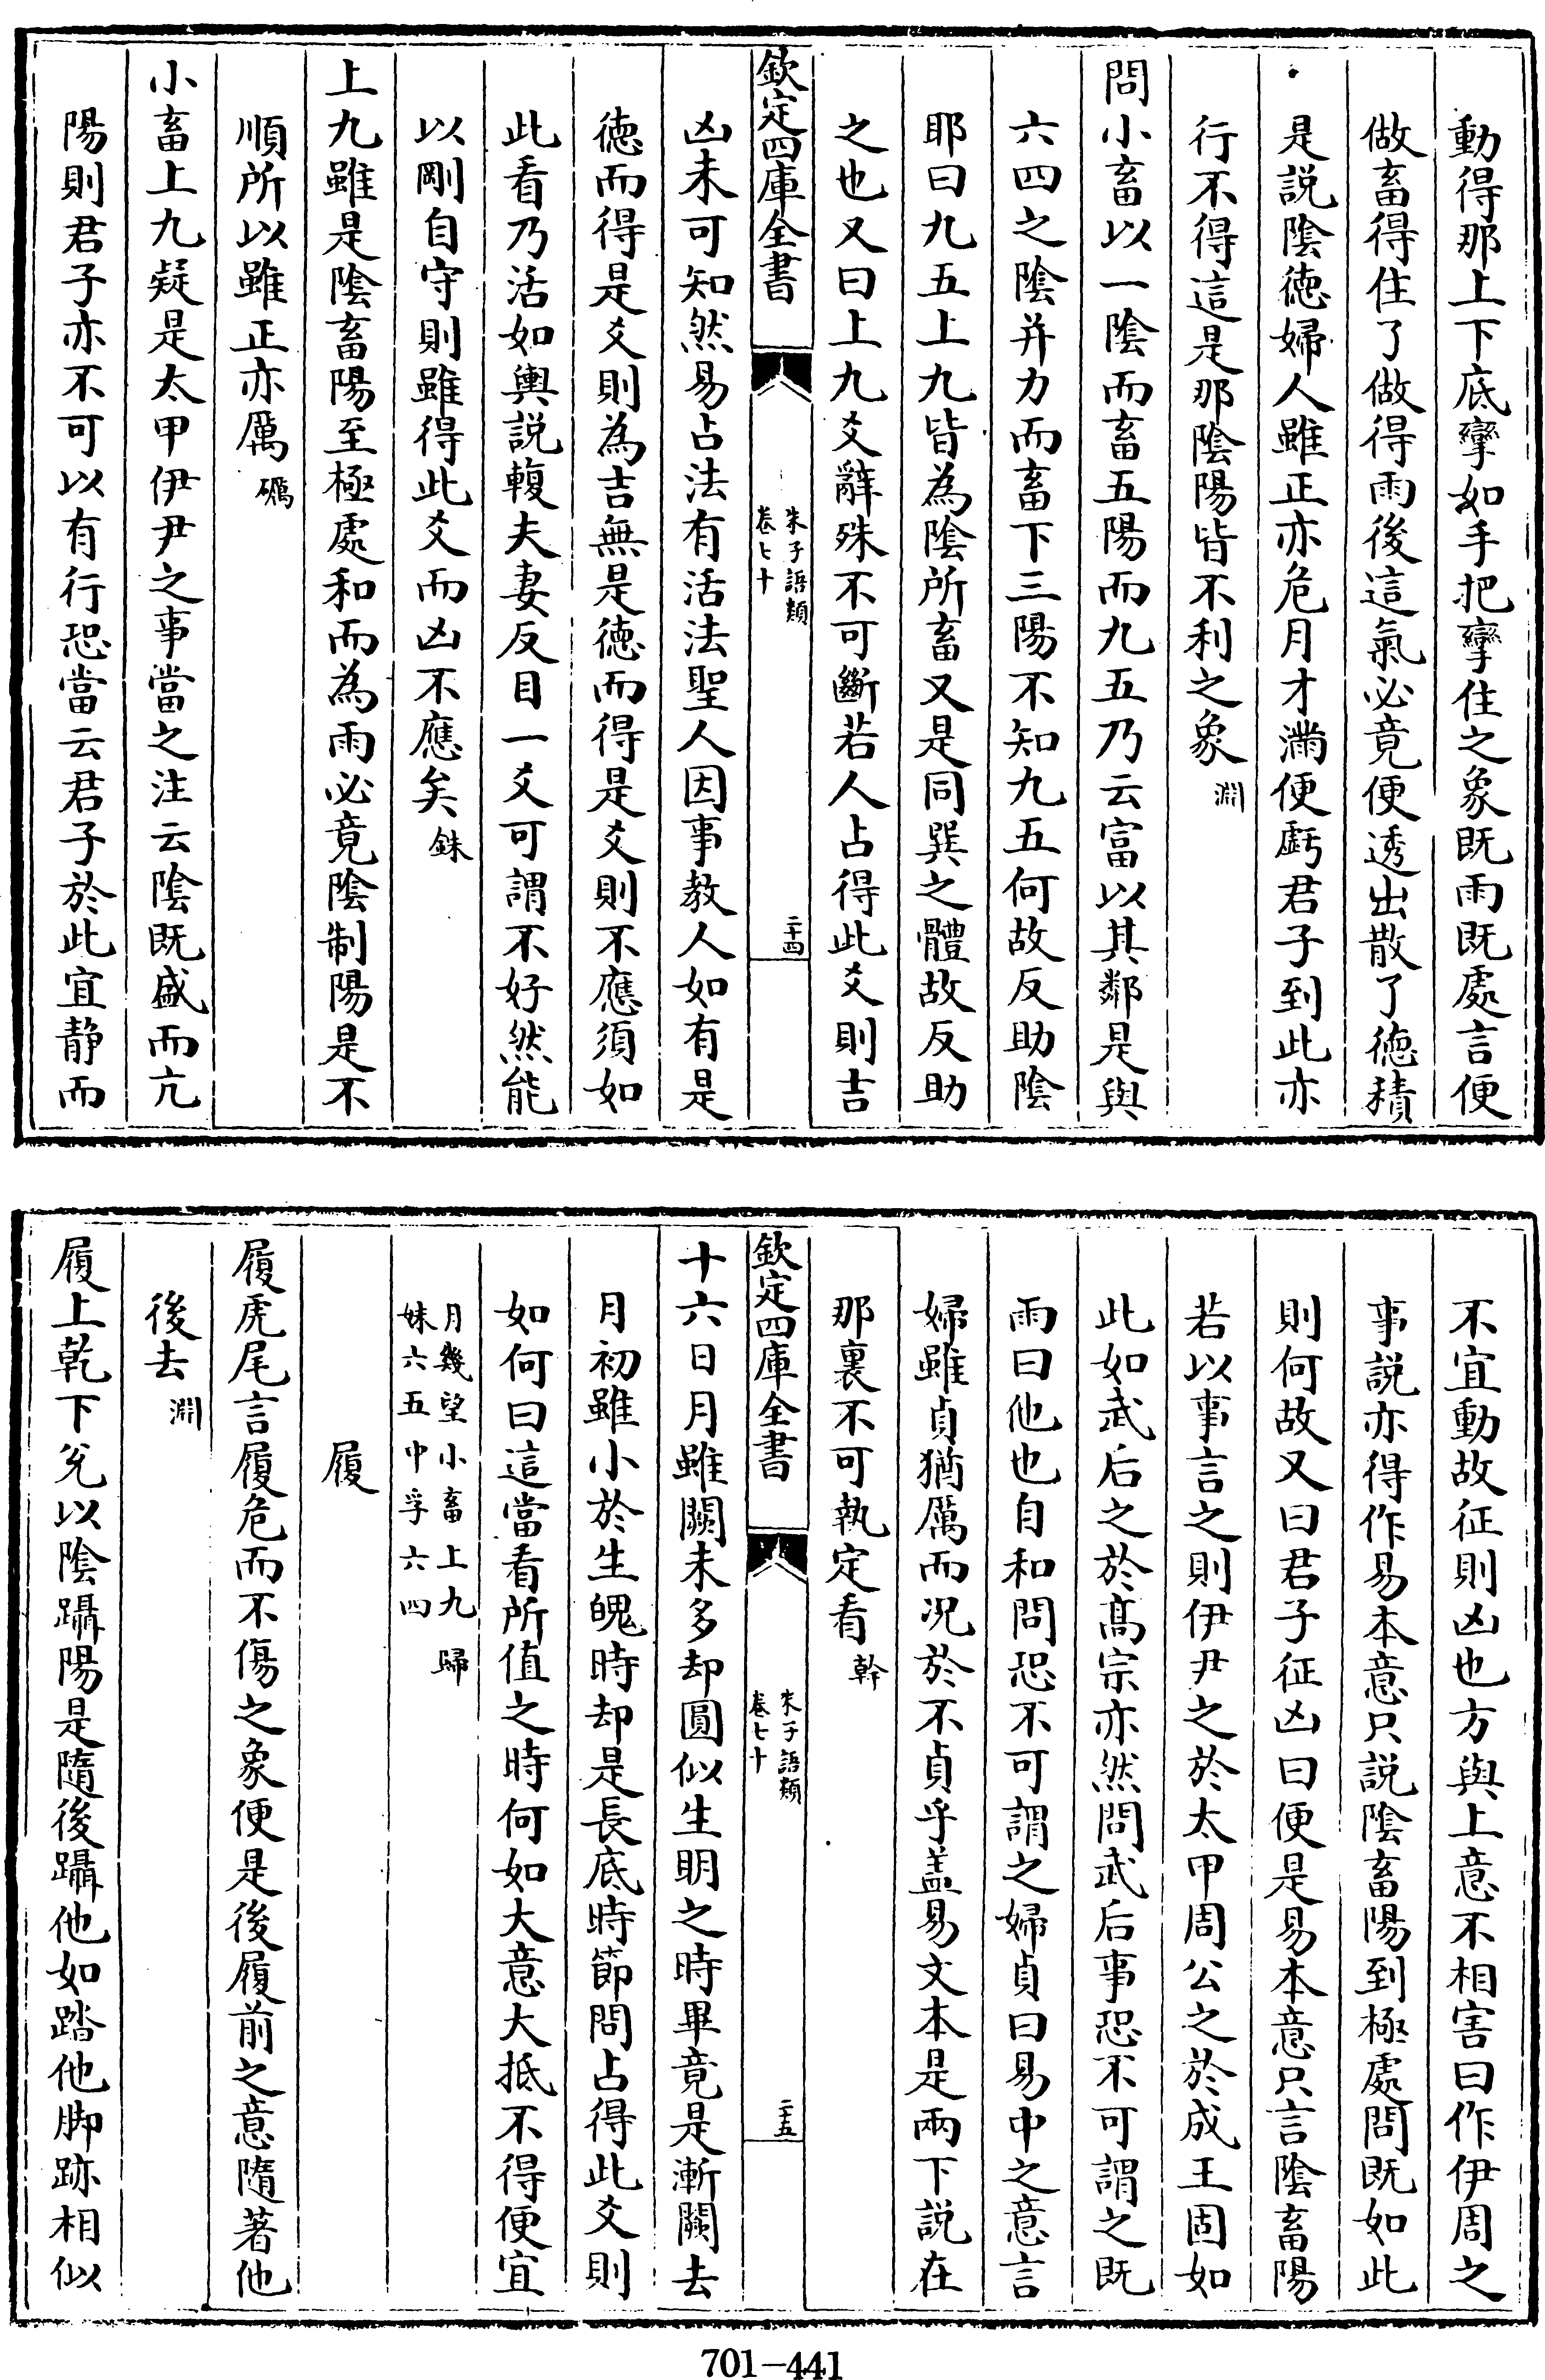 動得那上下底攣如手把攣住之象既雨既處言便
做畜得住了做得雨後這氣必竟便透出散了徳積
是説陰徳婦人雖正亦危月才滿便虧君子到此亦
行不得這是那陰陽皆不利之象淵
問小畜以一陰而畜五陽而九五乃云富以其鄰是與
六四之陰并力而畜下三陽不知九五何故反助陰
耶曰九五上九皆為陰所畜又是同巽之體故反助
之也又曰上九爻辭殊不可斷若人占得此爻則吉
欽定四庫全書
朱子語類
卷七十
二十四
凶未可知然易占法有活法聖人因事教人如有是
徳而得是爻則為吉無是徳而得是爻則不應須如
此看乃活如輿説輹夫妻反目一爻可謂不好然能
以剛自守則雖得此爻而凶不應矣銖
上九雖是陰畜陽至極處和而為雨必竟陰制陽是不
順所以雖正亦厲礪
小畜上九疑是太甲伊尹之事當之注云陰既盛而亢
陽則君子亦不可以有行恐當云君子於此宜静而
不宜動故征則凶也方與上意不相害曰作伊周之
事説亦得作易本意只説陰畜陽到極處問既如此
則何故又曰君子征凶曰便是易本意只言陰畜陽
若以事言之則伊尹之於太甲周公之於成王固如
此如武后之於髙宗亦然問武后事恐不可謂之既
雨曰他也自和問恐不可謂之婦貞曰易中之意言
婦雖貞猶厲而况於不貞乎盖易文本是兩下説在
那裏不可執定看榦
欽定四庫全書
朱子語類
卷七十
二十五
十六日月雖闕未多却圓似生明之時畢竟是漸闕去
月初雖小於生魄時却是長底時節問占得此爻則
如何曰這當看所值之時何如大意大抵不得便宜
月幾望小畜上九歸
妹六五中孚六四
履
履虎尾言履危而不傷之象便是後履前之意隨著他
後去淵
履上乾下兊以陰躡陽是隨後躡他如踏他脚跡相似
701-441